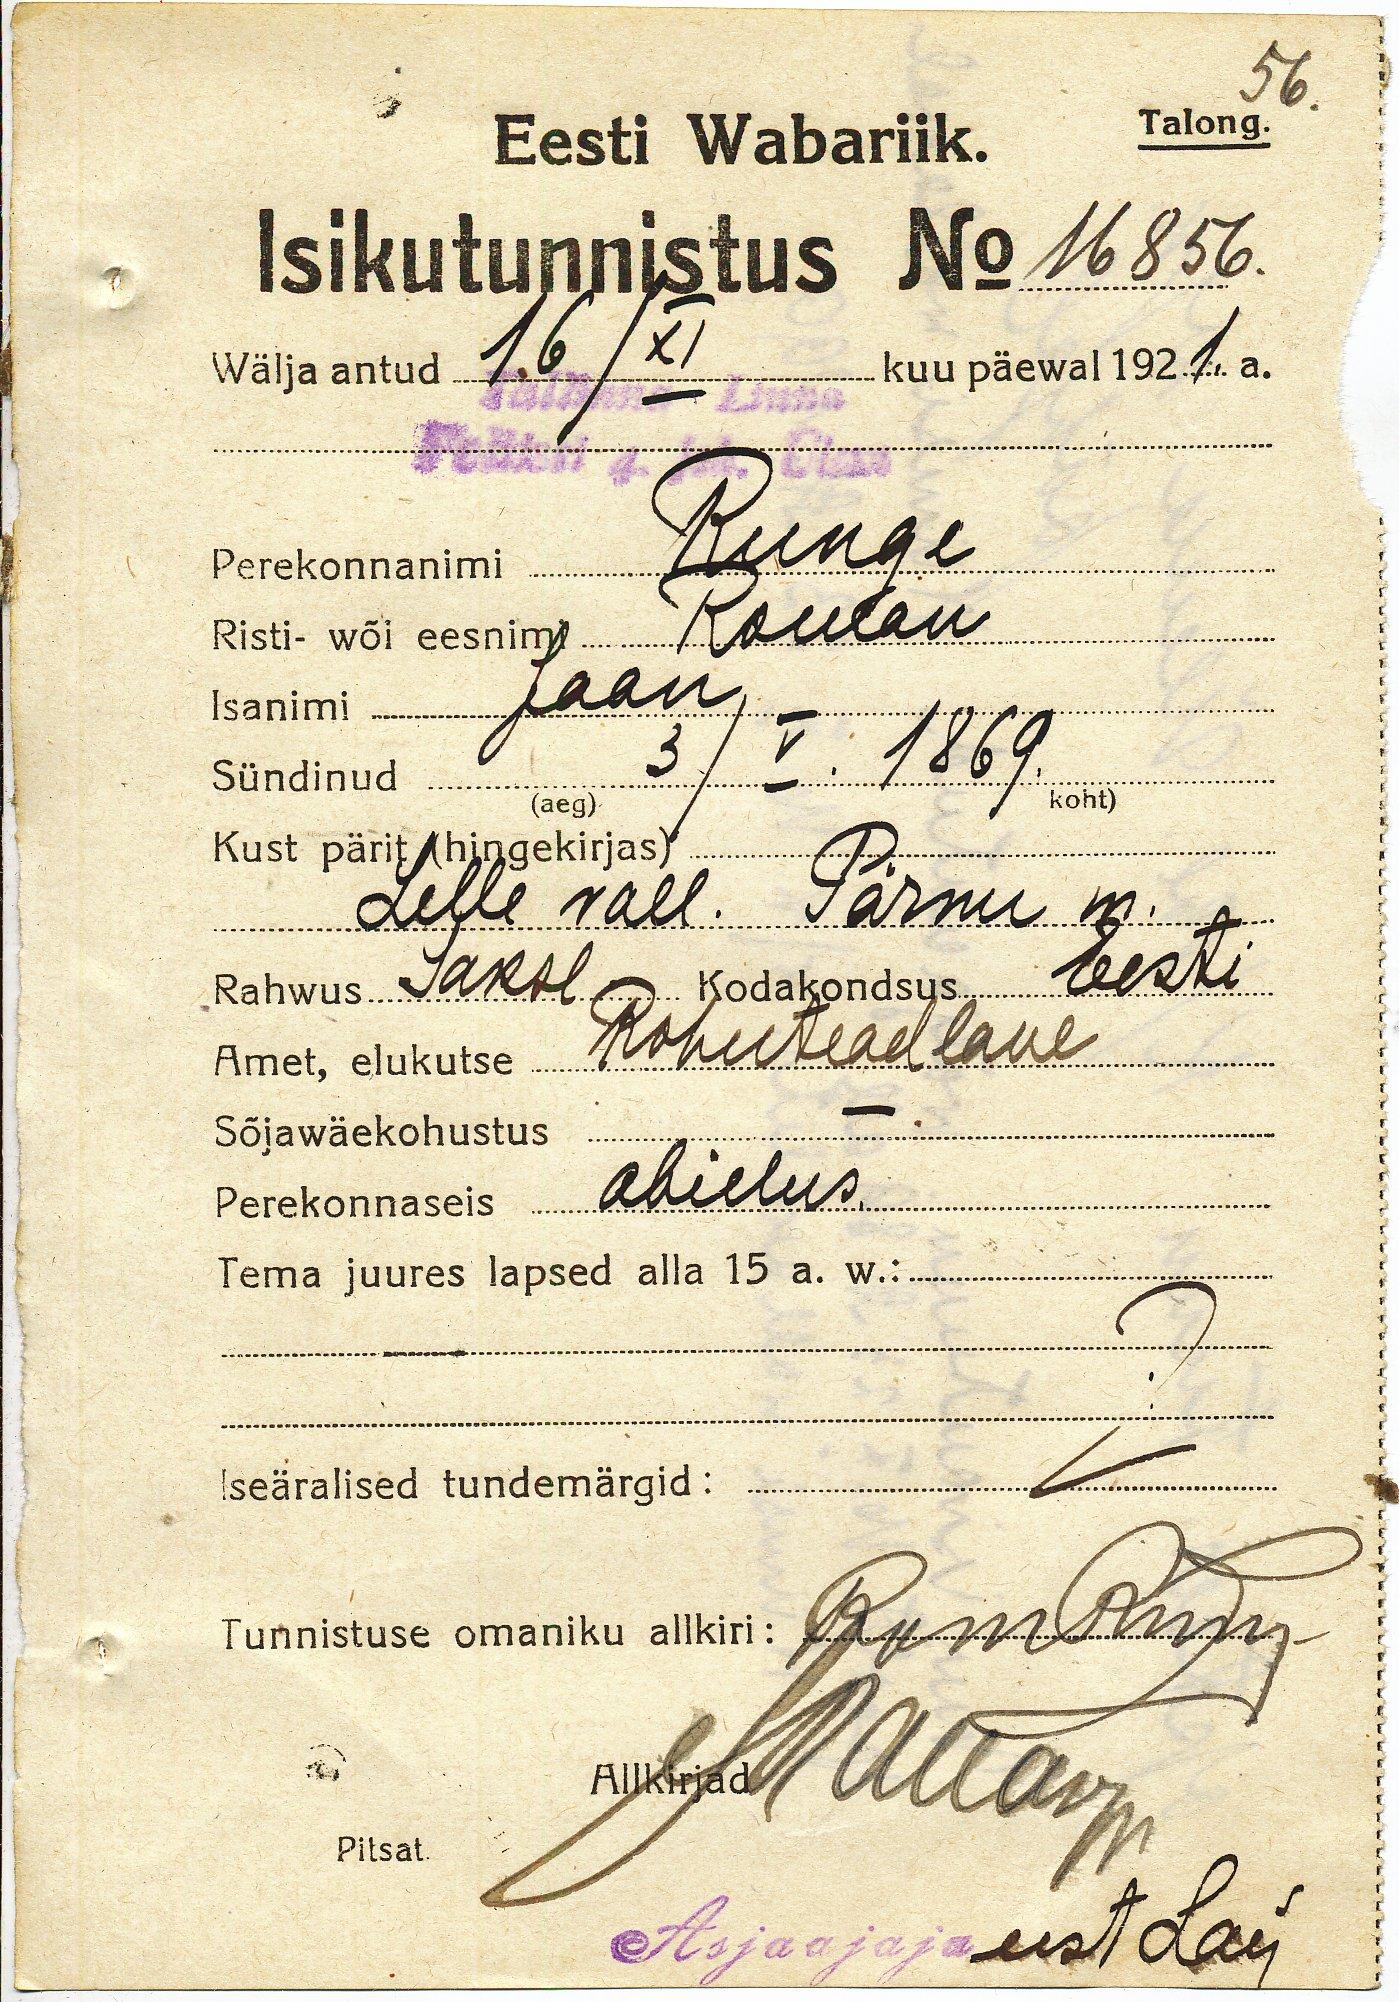 56.
Talong.
Eesti Wabariik.
Isikutunnistus № 16856.
Wälja antud 16/XI kuu päewal 1921. a.
Tallinna Linna
Politsei 4. jsk. Ülem
Perekonnanimi Runge
Risti- wõi eesnimi Roman
Isanimi Jaan
Sündinud 3/V. 1869.
(aeg) koht)
Kust pärit (hingekirjas)
Lelle vall. Pärnu m.
Rahwus Saksl Kodakondsus Eesti
Amet, elukutse Rohuteadlane
Sõjawäekohustus —
Perekonnaseis abielus.
Tema juures lapsed alla 15 a. w.:
—
Iseäralised tundemärgid:
Tunnistuse omaniku allkiri: Rom Runge
Allkirjad
Pitsat.
Asjaajaja eest